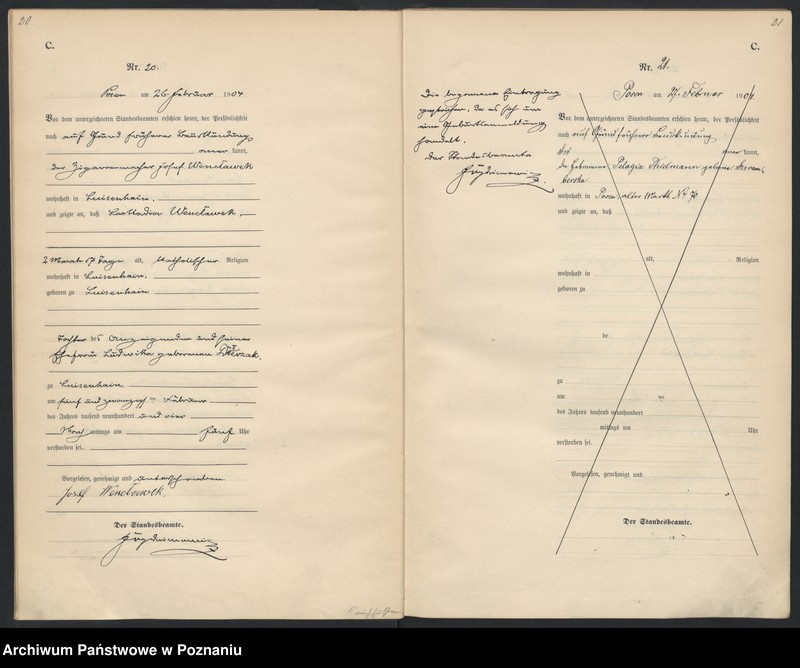 20
C.
Nr. 20.
Posen am 26. Februar 1904
Vor dem unterzeichneten Standesbeamten erschien heute, der Persönlichkeit
nach auf Grund früherer Beurkundung
kannt,
der Zigarrenmacher Josef Wencławek
wohnhaft in Luisenhain,
und zeigte an, daß Leokadia Wencławek,
2 Monat 17 Tage alt, katholischer Religion
wohnhaft in Luisenhain,
geboren zu Luisenhain
Tochter des Anzeigenden und seiner
Ehefrau Ludwika geborenen
zu Luisenhain
am fünf und zwanzigsten Februar
des Jahres tausend neunhundert und vier
Vor mittags um fünf Uhr
verstorben sei.
Vorgelesen, genehmigt und unterschrieben
Josef Wencławek.
Der Standesbeamte.
21
C.
Die begonnene Eintragung
gestrichen, da es sich um
eine Geburtsanmeldung
handelt.
Der Standesbeamte
Nr. 21.
Posen am 27. Februar 1904
Vor dem unterzeichneten Standesbeamten erschien heute, der Persönlichkeit
nach auf Grund früherer Beurkundung
kannt,
die Hebamme Pelagia geborene
wohnhaft in Posen, alter Markt No 70
und zeigte an, daß
alt, Religion
wohnhaft in
geboren zu
de
zu
am
des Jahres tausend neunhundert
mittags um Uhr
verstorben sei.
Vorgelesen, genehmigt und
Der Standesbeamte.
Archiwum Państwowe w Poznaniu